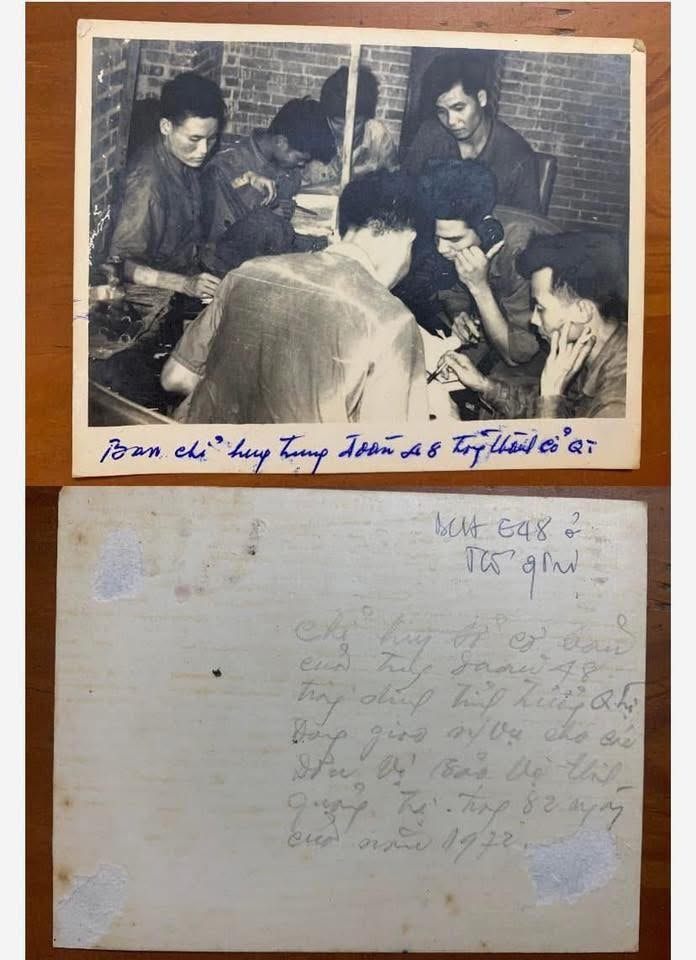 Ban chỉ huy trung đoàn 48 trong thành cổ Q.
BCH E48 ở
Chỉ huy sở cơ bản
của trung đoàn 48
trong dinh tỉnh trưởng Q.Trị
Đang giao n/vụ cho các
Đơn vị Bảo vệ thành
Quảng trị. trong 82 ngày
của năm 1972.